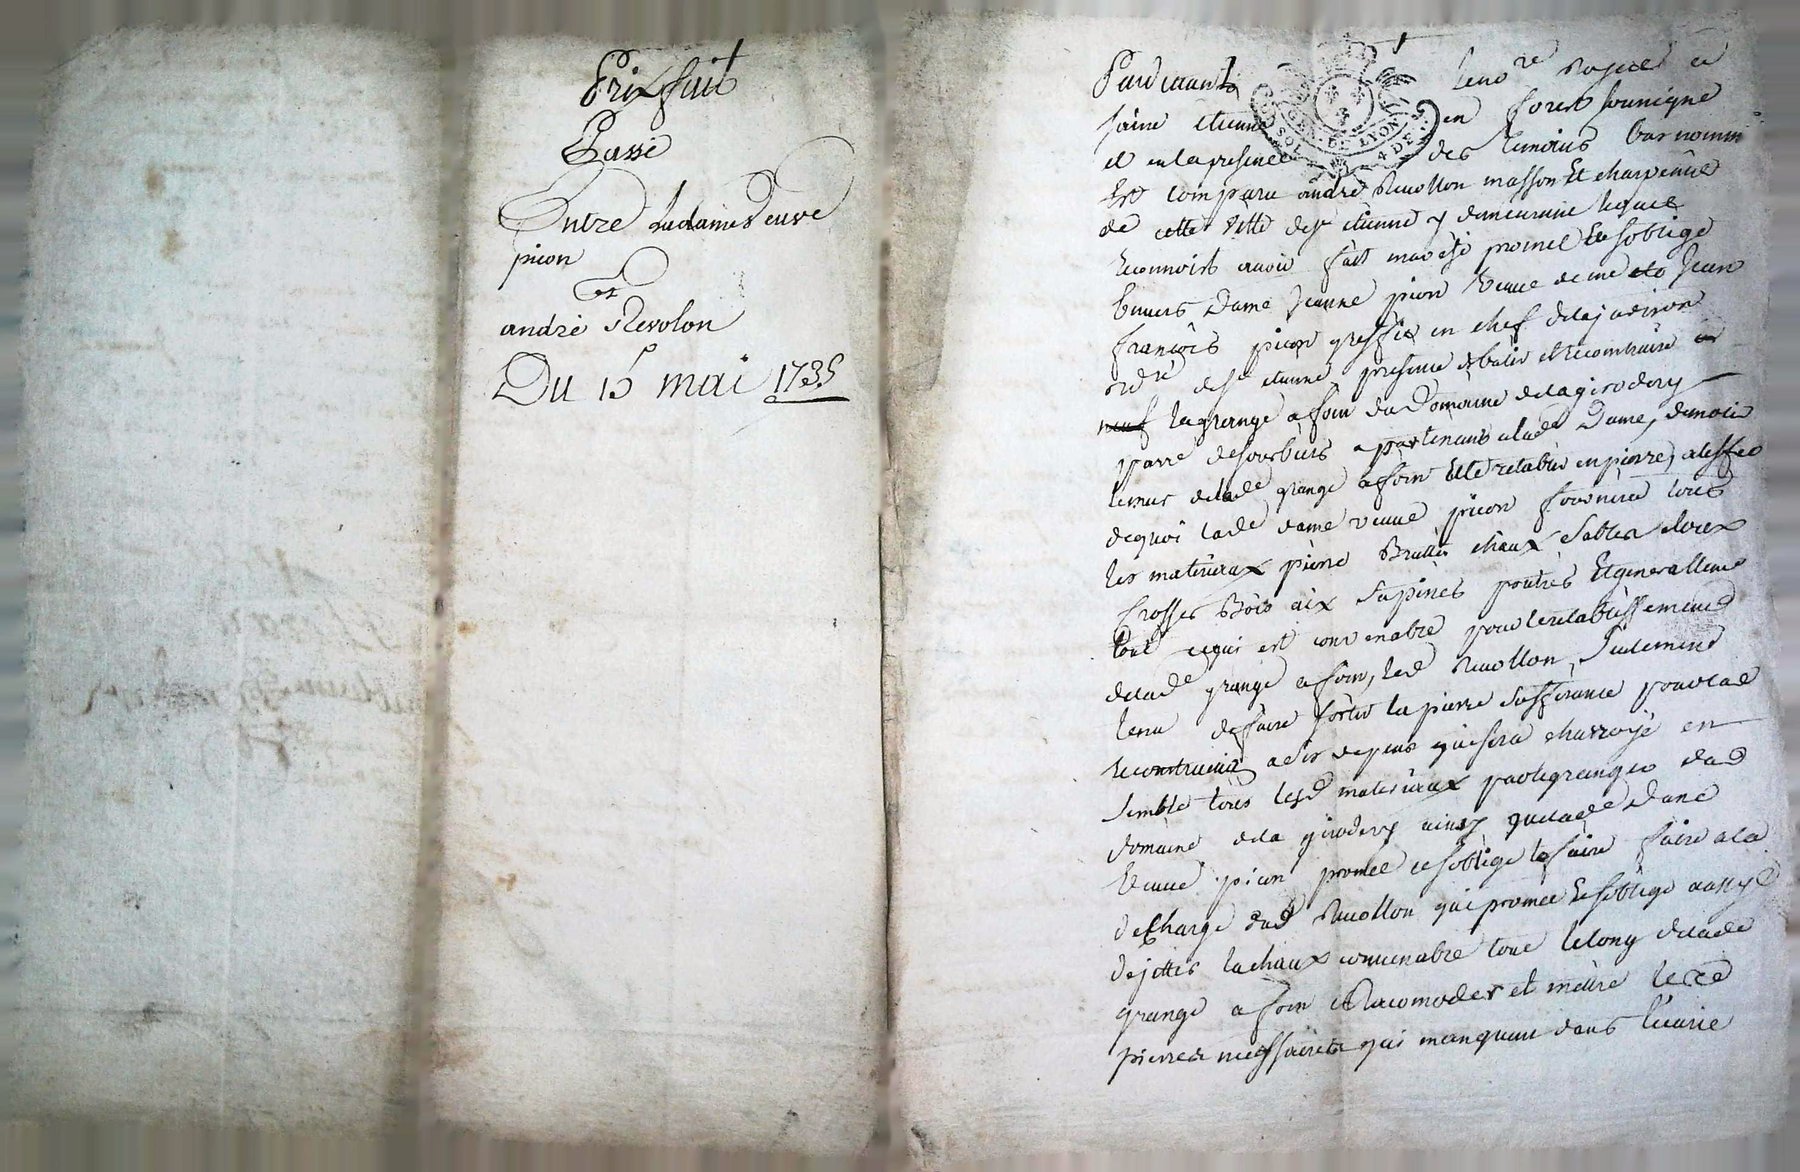 Prix fait
Passé
Entre La dame veuve
picon
et
andré Revolon
Du 15 mai 1735
Pardevant le no.re Royal a
saine etienne en forest soussigne
et en la presence des temoins bas nommé
Est comparu andré Revollon masson Et charpentié
de cette ville de s.t etienne y demeurant lequel
reconnoit avoir fait marché promet Et soblige
Envers dame Jeanne picon veuve de me Jean
françois picon greffié en chef de la juridiction
de s.t etienne presente de batir et reconstruire
neuf la grange a foin du Domaine de la giroderÿ
a partenant a la d.e Dame,
le mur de la d.e grange a foin Et le retablir en pierre, a leffet
de quoi la d.e dame veuve picon fournira tous
les materiaux pierre chaux sables
crosses Bois aix sapines poutres Et generallement
tout ce qui est convenable pour le retablissement
de la d.e grange a foin, led Revollon, seulement
tenu de faire sortir la pierre suffisante pour lad
qui sera charroyé en
semble tous lesd materiaux par le granger dud
domaine de la giroderÿ ainsy que la d.e dame
veuve picon promet et soblige le faire faire a la
decharge dud Revollon qui promet Et soblige aussy
de jetter la chaux convenable tout le long de la d.e
grange a foin et Racomoder et mettre
pierres necessaires qui manquent dans l'ecurie
GEN. DE LYON
4 DE